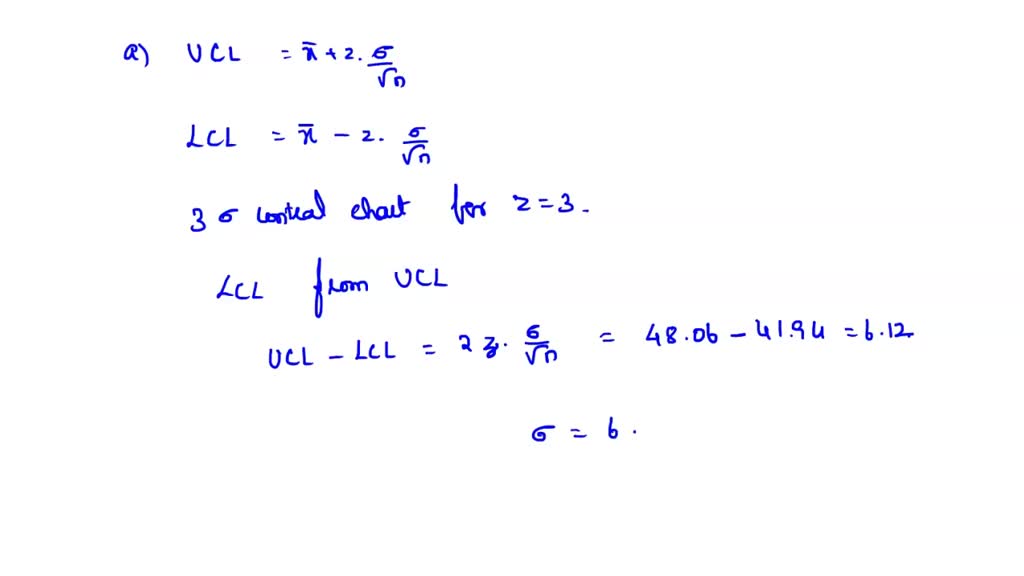 a) UCL = x̄ + z. σ/√n
LCL = x̄ - z. σ/√n
3 σ control chart for z = 3.
LCL from UCL
UCL - LCL = 2 z. σ/√n = 48.06 - 41.94 = 6.12
σ = 6.